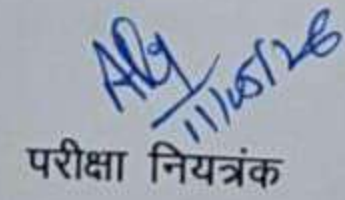 11/05/26
परीक्षा नियत्रंक